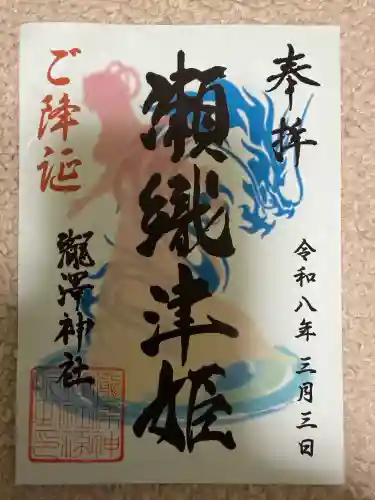 奉拝
瀬織津姫
令和八年三月三日
ご降誕
瀧澤神社